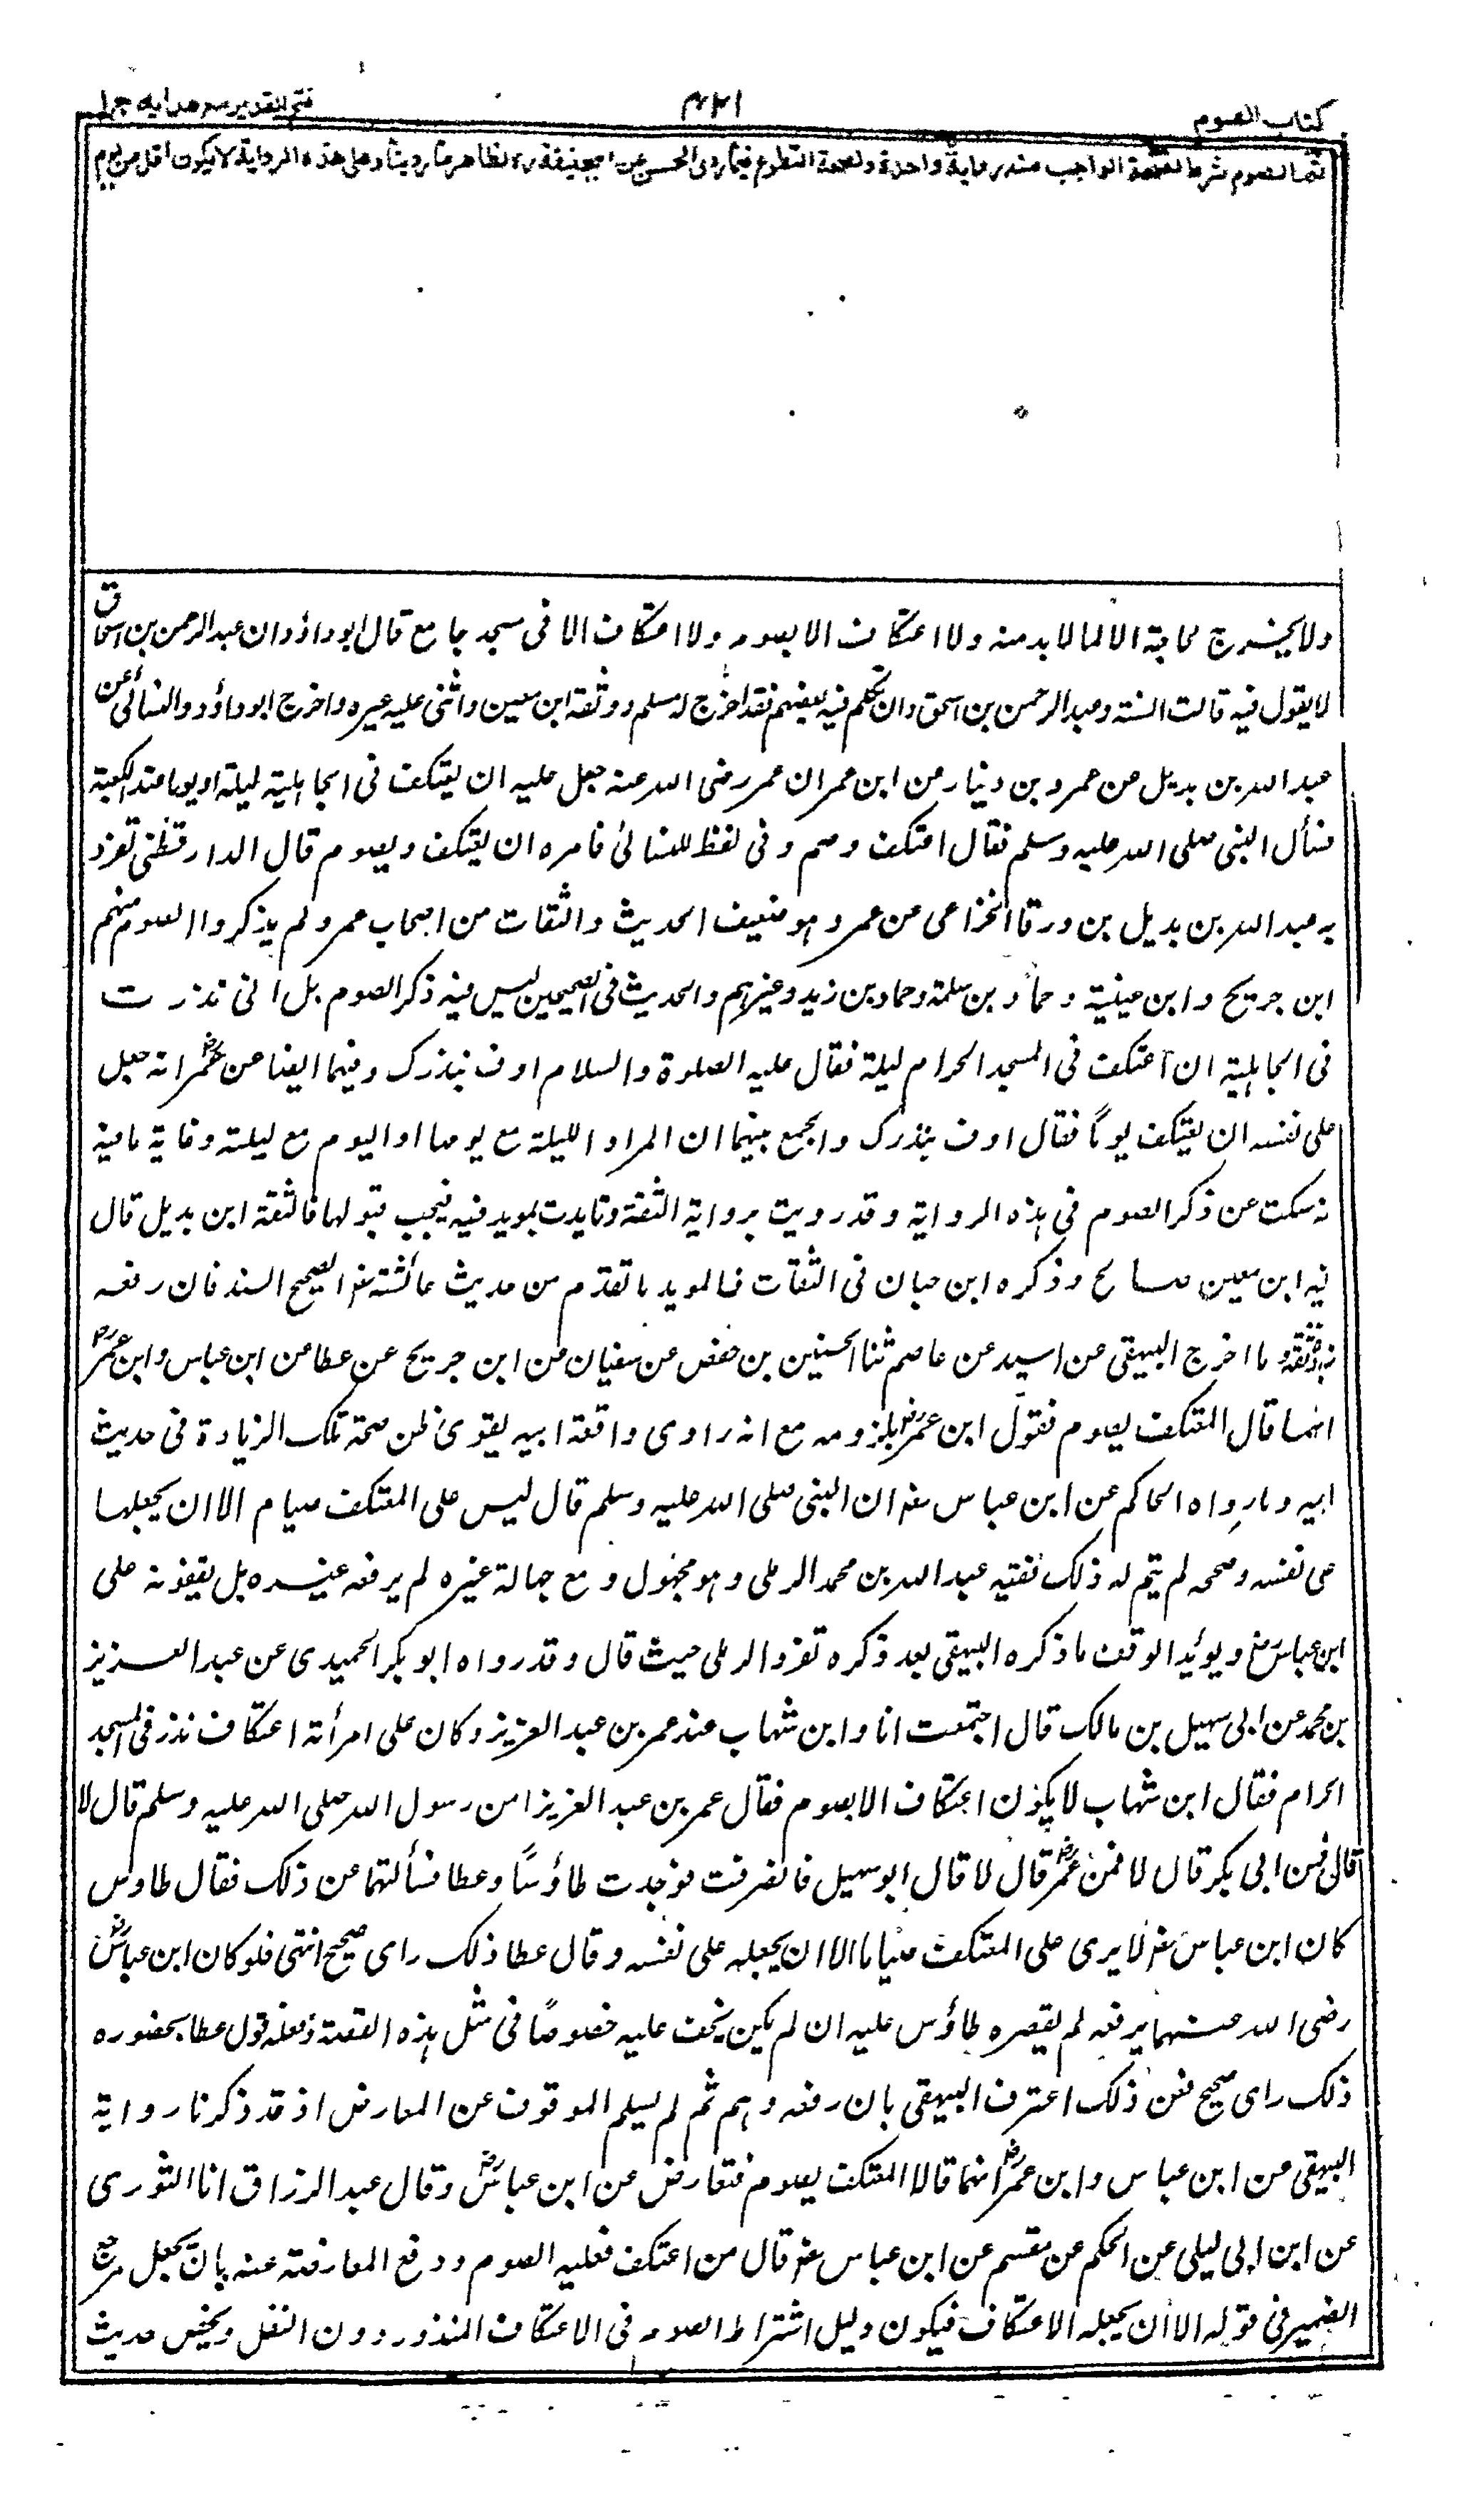 كتاب الصوم
۴۲۱
فتح القدير مع هدايه ج ۱
ثم الصوم شرط لصحة الواجب منه رواية واحدة ولصحة التطوع فيما روى الحسن عن ابيحنيفة رح لظاهر ما روينا وعلى هذه الرواية لا يكون اقل من يوم
ولا يخرج لحاجة الا لما لا بد منه ولا اعتكاف الا بصوم ولا اعتكاف الا فى مسجد جامع قال ابو داؤد ان عبد الرحمن بن اسحاق
لا يقول فيه قالت السنة وعبد الرحمن بن اسحق وان تكلم فيه بعضهم فقد اخرج له مسلم ووثقه ابن معين واثنى عليه غيره واخرج ابو داؤد والنسائى عن
عبد الله بن بديل عن عمرو بن دينار عن ابن عمر ان عمر رضى الله عنه جعل عليه ان يعتكف فى الجاهلية ليلة او يوما عند الكعبة
فسأل النبى صلى الله عليه وسلم فقال اعتكف وصم وفى لفظ للنسائى فامره ان يعتكف ويصوم قال الدارقطنى تفرد
به عبد الله بن بديل بن ورقا الخزاعى عن عمرو وهو ضعيف الحديث والثقات من اصحاب عمرو لم يذكروا الصوم منهم
ابن جريج وابن عيينة وحماد بن سلمة وحماد بن زيد وغيرهم والحديث فى الصحيحين ليس فيه ذكر الصوم بل انى نذرت
فى الجاهلية ان اعتكف فى المسجد الحرام ليلة فقال عليه الصلوة والسلام اوف بنذرك وفيهما ايضا عن عمر رض انه جعل
على نفسه ان يعتكف يوماً فقال اوف بنذرك والجمع بينهما ان المراد الليلة مع يومها او اليوم مع ليلته وغاية ما فيه
نه سكت عن ذكر الصوم فى هذه الرواية وقد رويت برواية الثقة وتايدت بمويد فيه فيجب قبولها فالثقة ابن بديل قال
فيه ابن معين صالح وذكره ابن حبان فى الثقات فالمويد ما تقدم من حديث عائشة رض الصحيح السند فان رفعه
زيادة ثقة وما اخرج البيهقى عن اسيد عن عاصم ثنا الحسين بن حفص عن سفيان عن ابن جريج عن عطا عن ابن عباس وابن عمر رض
انهما قال المعتكف يصوم فقول ابن عمر رض بلزومه مع انه راوى واقعة ابيه يقوى ظن صحة تلك الزيادة فى حديث
ابيه وما رواه الحاكم عن ابن عباس رض ان النبى صلى الله عليه وسلم قال ليس على المعتكف صيام الا ان يجعلها
على نفسه وصححه لم يتم له ذلك ففيه عبد الله بن محمد الرملى وهو مجهول ومع جهالة غيره لم يرفعه غيره بل يقفونه على
ابن عباس رض ويؤيد الوقف ما ذكره البيهقى بعد ذكره تفرد الرملى حيث قال وقد رواه ابو بكر الحميدى عن عبد العزيز
بن محمد عن ابى سهيل بن مالك قال اجتمعت انا وابن شهاب عند عمر بن عبد العزيز وكان على امرأته اعتكاف نذر فى المسجد
الحرام فقال ابن شهاب لا يكون اعتكاف الا بصوم فقال عمر بن عبد العزيز امن رسول الله صلى الله عليه وسلم قال لا
قال فمن ابى بكر قال لا فمن عمر رض قال لا قال ابو سهيل فانصرفت فوجدت طاؤسًا وعطا فسألتهما عن ذلك فقال طاوس
كان ابن عباس رض لا يرى على المعتكف صياما الا ان يجعله على نفسه وقال عطا ذلك راى صحيح انتهى فلو كان ابن عباس رض
رضى الله عنهما يرفعه لم يقصره طاؤس عليه ان لم يكن يخف عليه خصوصًا فى مثل هذه القصة وفعله قول عطا بحضوره
ذلك راى صحيح فعن ذلك اعترف البيهقى بان رفعه وهم ثم لم يسلم الموقوف عن المعارض اذ قد ذكرنا رواية
البيهقى عن ابن عباس وابن عمر رض انهما قالا المعتكف يصوم فتعارض عن ابن عباس رض وقال عبد الرزاق انا الثورى
عن ابن ابى ليلى عن الحكم عن مقسم عن ابن عباس رض قال من اعتكف فعليه الصوم ودفع المعارضة عنه بان يجعل مرجع
الضمير فى قوله الا ان يجعله الاعتكاف فيكون دليل اشتراط الصوم فى الاعتكاف المنذور دون النفل ويخص حديث